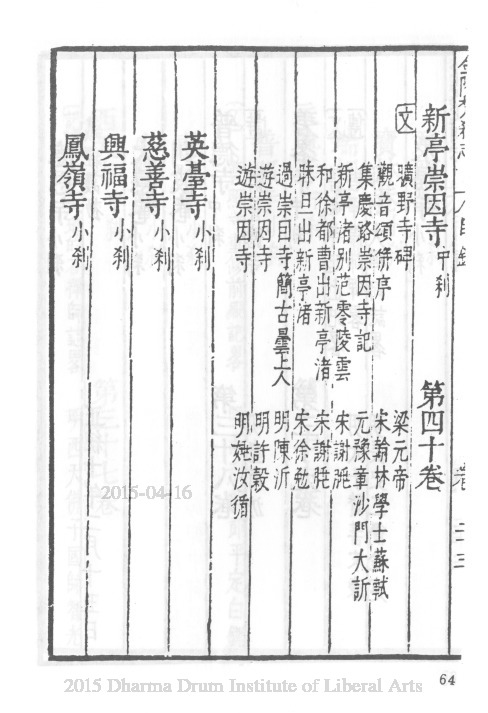 新亭崇因寺 中刹 第四十卷
文 曠野寺碑 梁元帝
觀音頌并序 宋翰林學士蘇軾
集慶路崇因寺記 元豫章沙門大訢
新亭渚別范零陵雲 宋謝朓
和徐都曹出新亭渚 宋謝朓
昧旦出新亭渚 宋徐勉
過崇因寺簡古曇上人 明陳沂
遊崇因寺 明許穀
遊崇因寺 明姚汝循
英臺寺 小刹
慈善寺 小刹
興福寺 小刹
鳳嶺寺 小刹
2015-04-16
64
2015 Dharma Drum Institute of Liberal Arts